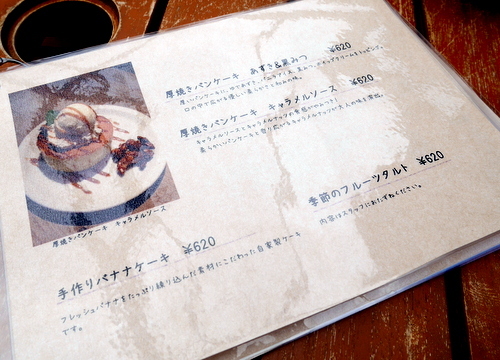 厚焼きパンケーキ あずき&黒みつ ¥620
厚焼きパンケーキ キャラメルソース ¥620
キャラメルソースとキャラメルナッツの
厚焼きパンケーキ キャラメルソース
季節のフルーツタルト ¥620
内容はスタッフにおたずねください。
手作りバナナケーキ ¥620
フレッシュバナナをたっぷり練り込んだ素材にこだわった自家製ケーキ
です。